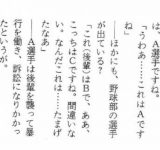 は、A選手ですね。
「うわあ……これはAです
ね」
——ほかにも、野球部の選手
が出ている?
「これ(後輩)はBで、ああ、
こっちはCですね。間違いな
い。なんだこれは……たまげ
たなあ」
——A選手は後輩を襲って暴
行を働き、訴訟になりかかっ
たというが。